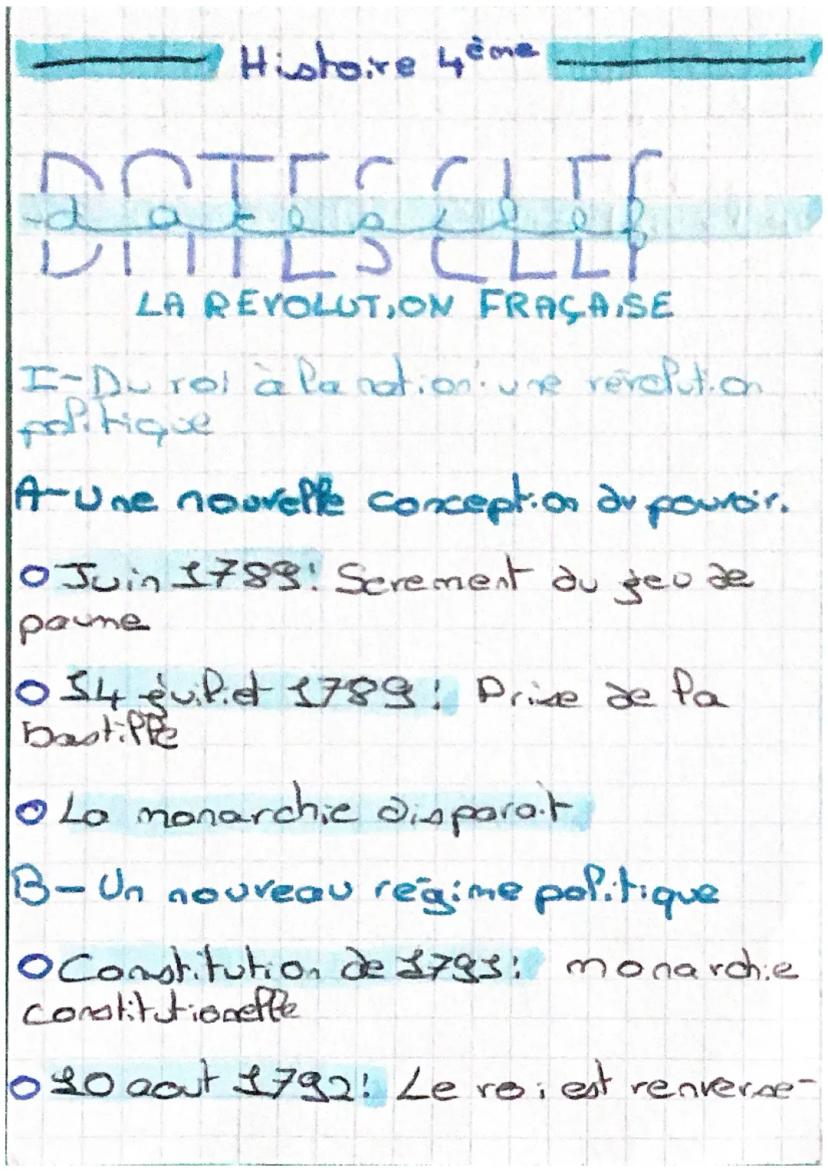 Histoire 4ème
DATES CLEF
dates clef
LA RÉVOLUTION FRAÇAISE
I-Du roi à la nation: une révolution
politique
A-Une nouvelle conception du pouvoir.
Juin 1789: Screment du jeu de
paume
14 juillet 1789: Prise de la
bastille
La monarchie disparait
B-Un nouveau régime politique
Constitution de 1791: monarchie
constitutionelle
10 aout 1792: Le roi est renverse-